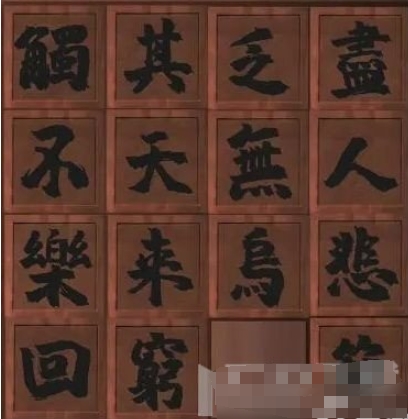 觸其乏盡
不天無人
樂來烏悲
回窮